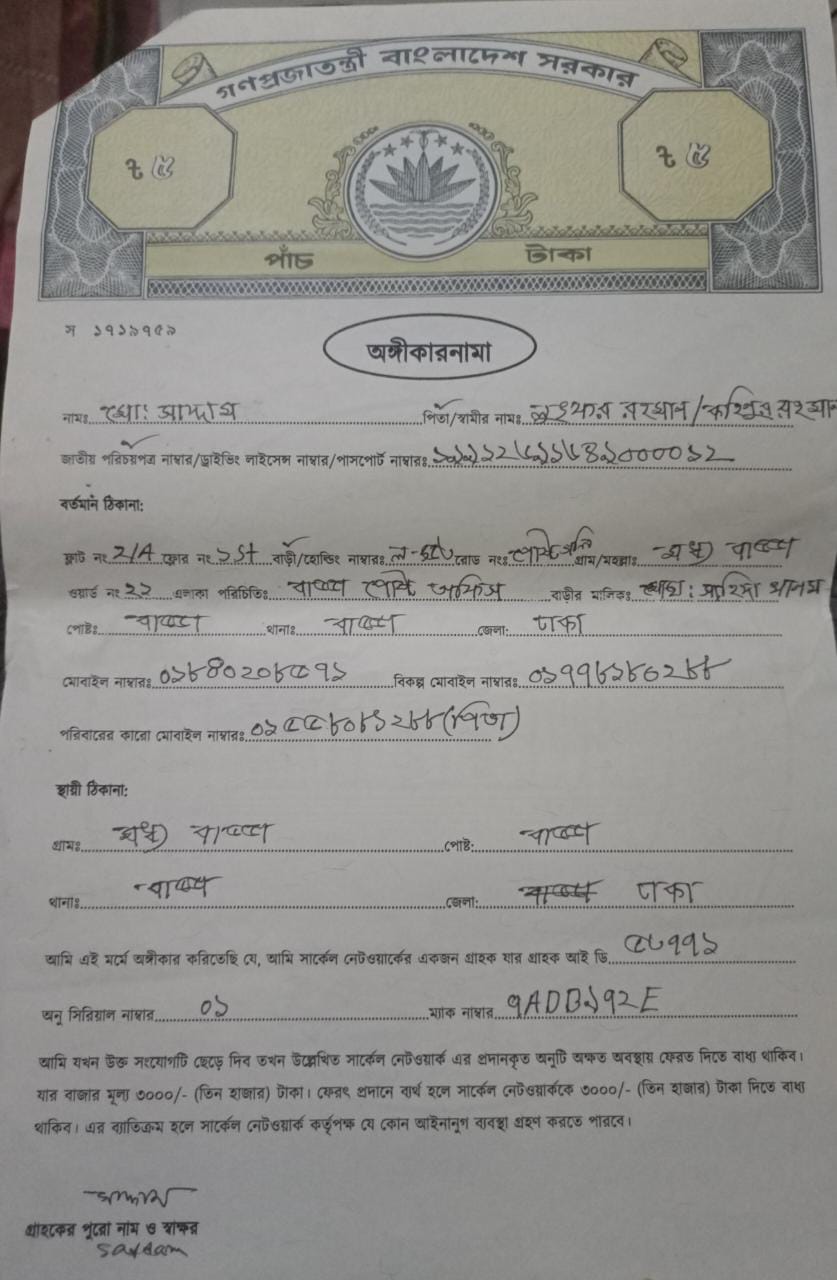 গণপ্রজাতন্ত্রী বাংলাদেশ সরকার
৳ ৫ ৳ ৫
পাঁচ টাকা
স ১৭১৯৭৫৯
অঙ্গীকারনামা
নামঃ মোঃ পিতা/স্বামীর নামঃ
জাতীয় পরিচয়পত্র নাম্বার/ড্রাইভিং লাইসেন্স নাম্বার/পাসপোর্ট নাম্বারঃ
বর্তমান ঠিকানা:
ফ্লাট নং 2/A ফ্লোর নং ১st বাড়ী/হোল্ডিং নাম্বারঃ রোড নংঃ গ্রাম/মহল্লাঃ মধ্য বাড্ডা
ওয়ার্ড নং ২১ এলাকা পরিচিতিঃ বাড্ডা পোস্ট অফিস বাড়ীর মালিকঃ
পোষ্টঃ বাড্ডা থানাঃ বাড্ডা জেলা: ঢাকা
মোবাইল নাম্বারঃ বিকল্প মোবাইল নাম্বারঃ
পরিবারের কারো মোবাইল নাম্বারঃ (পিতা)
স্থায়ী ঠিকানা:
গ্রামঃ মধ্য বাড্ডা পোষ্ট: বাড্ডা
থানাঃ বাড্ডা জেলা: ঢাকা
আমি এই মর্মে অঙ্গীকার করিতেছি যে, আমি সার্কেল নেটওয়ার্কের একজন গ্রাহক যার গ্রাহক আই ডি
অনু সিরিয়াল নাম্বার ০১ ম্যাক নাম্বার ৭ADB১৭২E
আমি যখন উক্ত সংযোগটি ছেড়ে দিব তখন উল্লেখিত সার্কেল নেটওয়ার্ক এর প্রদানকৃত অনুটি অক্ষত অবস্থায় ফেরত দিতে বাধ্য থাকিব।
যার বাজার মূল্য ৩০০০/- (তিন হাজার) টাকা। ফেরৎ প্রদানে ব্যর্থ হলে সার্কেল নেটওয়ার্ককে ৩০০০/- (তিন হাজার) টাকা দিতে বাধ্য
থাকিব। এর ব্যতিক্রম হলে সার্কেল নেটওয়ার্ক কর্তৃপক্ষ যে কোন আইনানুগ ব্যবস্থা গ্রহণ করতে পারবে।
গ্রাহকের পুরো নাম ও স্বাক্ষর